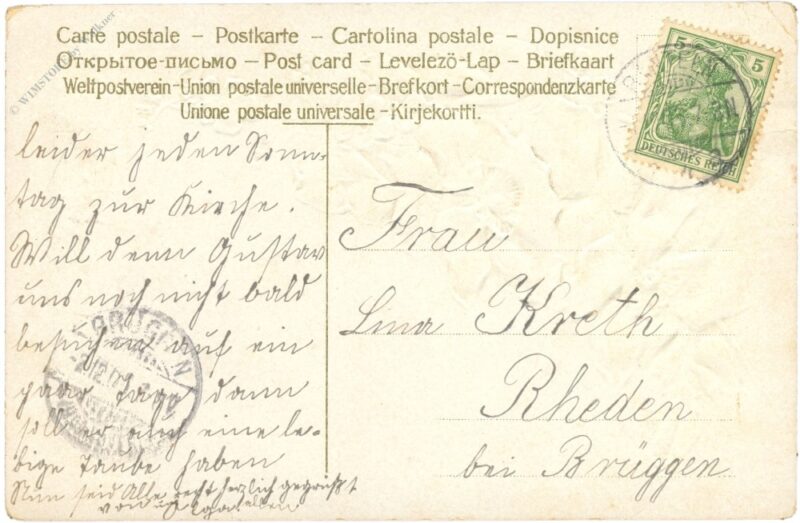 Carte postale – Postkarte – Cartolina postale – Dopisnice
Открытое-письмо – Post card – Levelezö-Lap – Briefkaart
Weltpostverein-Union postale universelle-Brefkort-Correspondenzkarte
Unione postale universale - Kirjekortti.
5 5
DEUTSCHES REICH
leider jeden Sonn-
tag zur Kirche.
Will denn Gustav
uns noch nicht bald
besuchen auf ein
paar Tage dann
soll er auch eine le-
bige Taube haben
Nun seid Alle recht herzlich gegrüßt
von
Frau
Lina Kreth
Rheden
bei Brüggen
BRÜGGEN
© WIMSTORY by